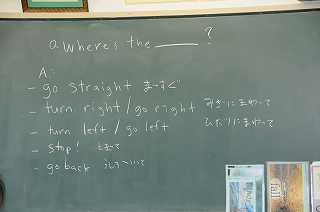 Q Where's the ____ ?
A:
- go straight まっすぐ
- turn right / go right みぎにまわって
- turn left / go left ひだりにまわって
- stop! とまって
- go back